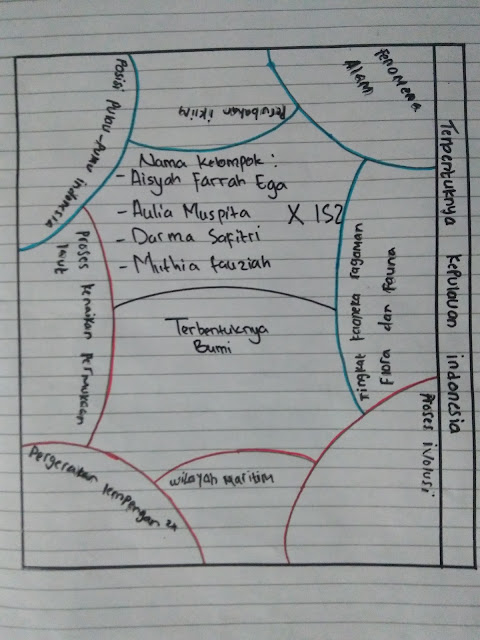 Terbentuknya kepulauan indonesia
Fenomena
Alam
Perubahan iklim
Posisi Pulau-Pulau indonesia
Nama kelompok :
- Aisyah Farrah Ega
- Aulia Muspita
- Darma Safitri
- Muthia fauziah
X IS2
Tingkat kaaneka ragaman
Flora dan fauna
Proses kenaikan Permukaan
laut
Terbentuknya
Bumi
Proses ivolusi
wilayah maritim
Pergerakan lempengan